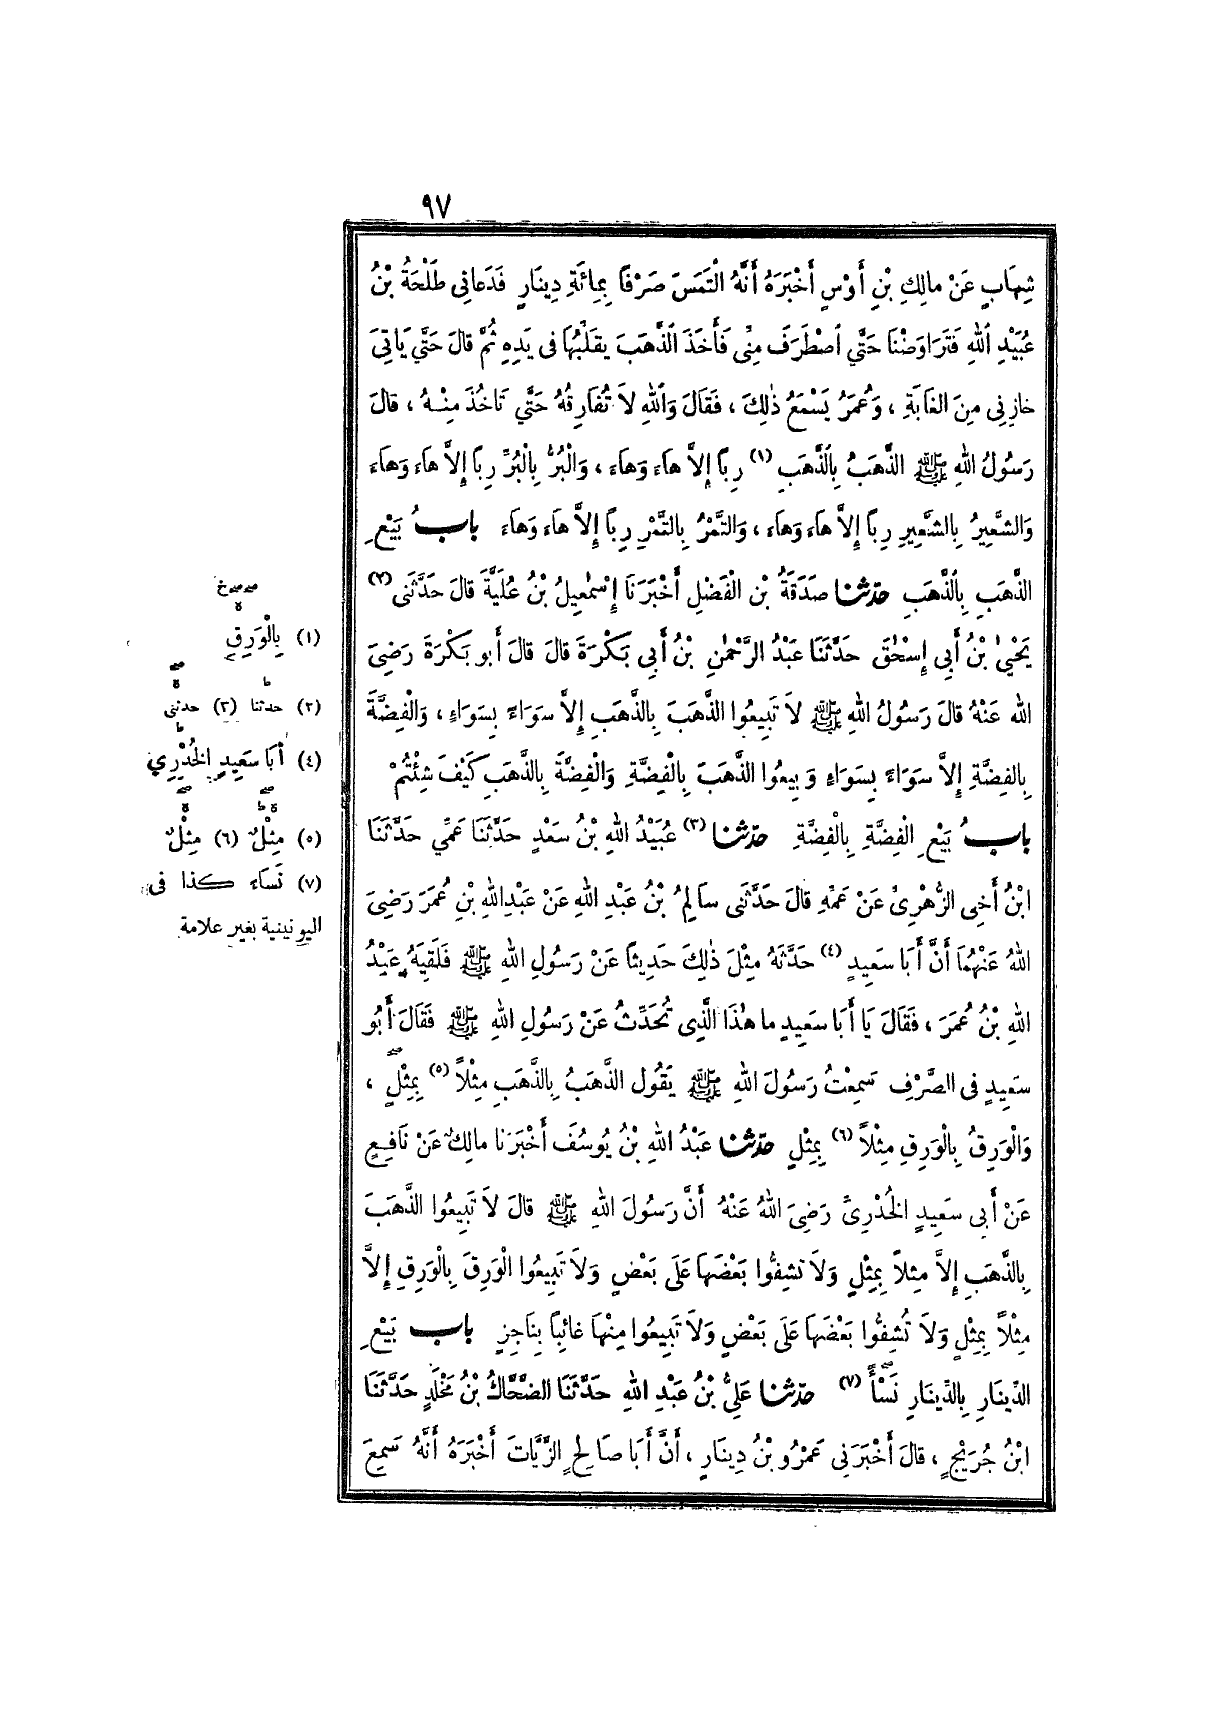 ٩٧
شِهَابٍ عَنْ مالِكِ بْنِ أَوْسٍ أَخْبَرَهُ أَنَّهُ الْتَمَسَ صَرْفًا بِمِائَةِ دِينَارٍ فَدَعانِى طَلْحَةُ بْنُ
عُبَيْدِ اللهِ فَتَرَاوَضْنَا حَتَّى اصْطَرَفَ مِنِّى فَأَخَذَ الذَّهَبَ يُقَلِّبُهَا فِى يَدِهِ ثُمَّ قالَ حَتَّى يَاتِىَ
خازِنِى مِنَ الغَابَةِ ، وَعُمَرُ يَسْمَعُ ذٰلِكَ ، فَقَالَ وَاللهِ لاَ تُفَارِقُهُ حَتَّى تَاخُذَ مِنْهُ ، قالَ
رَسُولُ اللهِ ﷺ الذَّهَبُ بِالذَّهَبِ (١) رِبًا إِلاَّ هاءَ وَهاءَ ، وَالْبُرُّ بِالْبُرِّ رِبًا إِلاَّ هاءَ وَهاءَ
وَالشَّعِيرُ بِالشَّعِيرِ رِبًا إِلاَّ هاءَ وَهاءَ ، وَالتَّمْرُ بِالتَّمْرِ رِبًا إِلاَّ هاءَ وَهاءَ بابُ بَيْعِ
الذَّهَبِ بِالذَّهَبِ حدّثنا صَدَقَةُ بْنُ الْفَضْلِ أَخْبَرَنَا إِسْمٰعِيلُ بْنُ عُلَيَّةَ قالَ حَدَّثَنِى (٢)
يَحْيىٰ بْنُ أَبِى إِسْحٰقَ حَدَّثَنَا عَبْدُ الرَّحْمٰنِ بْنُ أَبِى بَكْرَةَ قالَ قالَ أَبو بَكْرَةَ رَضِىَ
اللهُ عَنْهُ قالَ رَسُولُ اللهِ ﷺ لاَ تَبِيعُوا الذَّهَبَ بِالذَّهَبِ إِلاَّ سَوَاءً بِسَوَاءٍ ، وَالْفِضَّةَ
بِالفِضَّةِ إِلاَّ سَوَاءً بِسَوَاءٍ وَبِيعُوا الذَّهَبَ بِالْفِضَّةِ وَالْفِضَّةَ بِالذَّهَبِ كَيْفَ شِئْتُمْ
بابُ بَيْعِ الْفِضَّةِ بِالْفِضَّةِ حدّثنا (٣) عُبَيْدُ اللهِ بْنُ سَعْدٍ حَدَّثَنَا عَمِّى حَدَّثَنَا
ابْنُ أَخِى الزُّهْرِىِّ عَنْ عَمِّهِ قالَ حَدَّثَنِى سالِمُ بْنُ عَبْدِ اللهِ عَنْ عَبْدِ اللهِ بْنِ عُمَرَ رَضِىَ
اللهُ عَنْهُمَا أَنَّ أَبَا سَعِيدٍ (٤) حَدَّثَهُ مِثْلَ ذٰلِكَ حَدِيثًا عَنْ رَسُولِ اللهِ ﷺ فَلَقِيَهُ عَبْدُ
اللهِ بْنُ عُمَرَ ، فَقَالَ يَا أَبَا سَعِيدٍ ما هٰذَا الَّذِى تُحَدِّثُ عَنْ رَسُولِ اللهِ ﷺ فَقَالَ أَبُو
سَعِيدٍ فِى الصَّرْفِ سَمِعْتُ رَسُولَ اللهِ ﷺ يَقُولُ الذَّهَبُ بِالذَّهَبِ مِثْلاً (٥) بِمِثْلٍ ،
وَالْوَرِقُ بِالْوَرِقِ مِثْلاً (٦) بِمِثْلٍ حدّثنا عَبْدُ اللهِ بْنُ يُوسُفَ أَخْبَرَنَا مالِكٌ عَنْ نَافِعٍ
عَنْ أَبِى سَعِيدٍ الخُدْرِىِّ رَضِىَ اللهُ عَنْهُ أَنَّ رَسُولَ اللهِ ﷺ قالَ لاَ تَبِيعُوا الذَّهَبَ
بِالذَّهَبِ إِلاَّ مِثْلاً بِمِثْلٍ وَلاَ تُشِفُّوا بَعْضَهَا عَلَى بَعْضٍ وَلاَ تَبِيعُوا الْوَرِقَ بِالْوَرِقِ إِلاَّ
مِثْلاً بِمِثْلٍ وَلاَ تُشِفُّوا بَعْضَهَا عَلَى بَعْضٍ وَلاَ تَبِيعُوا مِنْهَا غائِبًا بِنَاجِزٍ باب بَيْعِ
الدِّينَارِ بِالدِّينَارِ نَسْأً (٧) حدّثنا عَلِىُّ بْنُ عَبْدِ اللهِ حَدَّثَنَا الضَّحَّاكُ بْنُ مَخْلَدٍ حَدَّثَنَا
ابْنُ جُرَيْجٍ ، قالَ أَخْبَرَنِى عَمْرُو بْنُ دِينَارٍ ، أَنَّ أَبَا صَالِحٍ الزَّيَّاتَ أَخْبَرَهُ أَنَّهُ سَمِعَ
(١) بِالْوَرِقِ
(٢) حدثنا (٣) حدثنى
(٤) أَبَا سَعِيدٍ الخُدْرِيَّ
(٥) مِثْلٌ (٦) مِثْلٌ
(٧) نَسَاء كذا فى
اليونينية بغير علامة